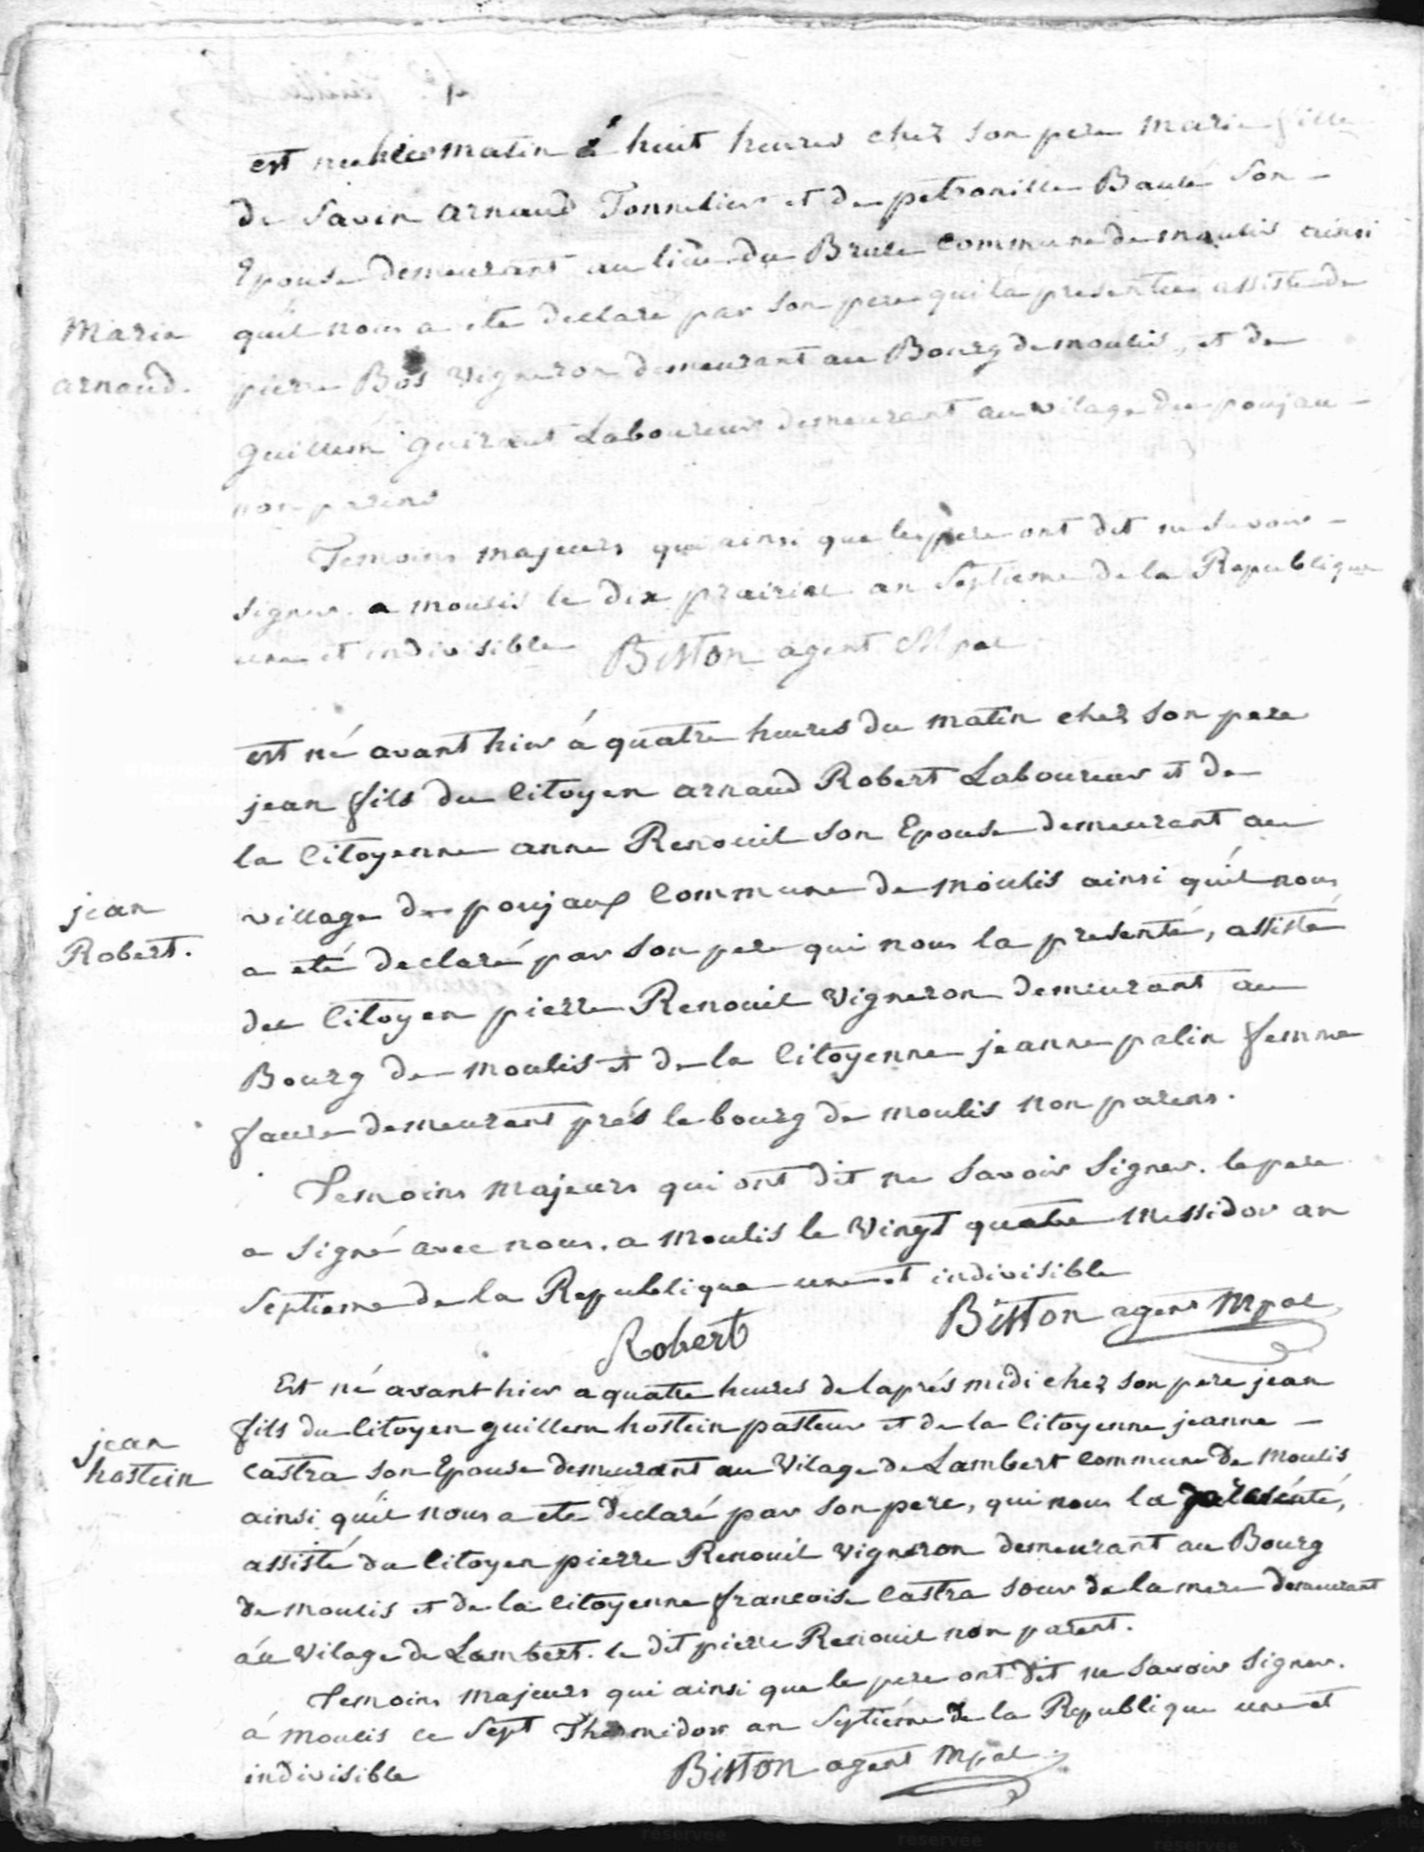 est nee hier matin à huit heures chez son pere Marie fille
de Savin arnaud Tonnelier et de petronille Baulé son
Epouse demeurant au lieu du Brule commune de moulis ainsi
Marie
arnaud.
quil nous a ete declaré par son pere qui la presentée assisté de
pierre Bos vigneron demeurant au Bourg de moulis, et de
Guillem Guiraut Laboureur demeurant au vilage de poujau
non parens
Temoins majeurs qui ainsi que le pere ont dit ne savoir
signer. a moulis le dix prairial an septieme de la Republique
une et indivisible Biston agent Mpal
est né avant hier á quatre heures du matin chez son pere
jean fils du Citoyen arnaud Robert Laboureur et de
la Citoyenne anne Renouil son Epouse demeurant au
village de poujaux Commune de moulis ainsi quil nous
jean
Robert.
a eté declaré par son pere qui nous la presenté, assisté
du Citoyen pierre Renouil vigneron demeurant au
Bourg de moulis et de la Citoyenne jeanne palin femme
faure demeurant prés le bourg de moulis non parens.
Temoins majeurs qui ont dit ne savoir signer. le pere
a signé avec nous. a moulis le vingt quatre Messidor an
septieme de la Republique une et indivisible
Robert Biston agent Mpal
Est né avant hier a quatre heures de laprés midi chez son pere jean
fils du Citoyen guillem hostein pasteur et de la Citoyenne jeanne
jean
hostein
castra son Epouse demeurant au vilage de Lambert commune de moulis
ainsi quil nous a ete declaré par son pere, qui nous la presénté,
assisté du Citoyen pierre Renouil vigneron demeurant au Bourg
de moulis et de la Citoyenne francoise Castra sour de la mere demeurant
áu vilage de Lambert. le dit pierre Renouil non parent.
Temoins majeurs qui ainsi que le pere ont dit ne savoir signer.
á moulis ce sept Thermidor an septiéme de la Republique une et
indivisible Biston agent Mpal